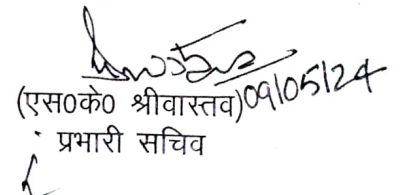 (एस0के0 श्रीवास्तव)09/05/24
प्रभारी सचिव